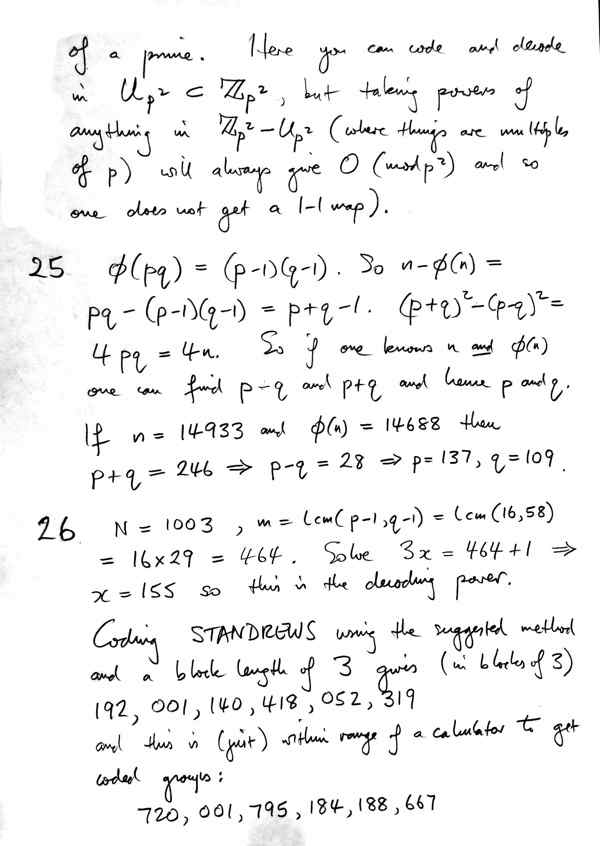 of a prime. Here you can code and decode
in U_{p²} ⊂ ℤ_{p²}, but taking powers of
anything in ℤ_{p²} - U_{p²} (where things are multiples
of p) will always give 0 (mod p²) and so
one does not get a 1-1 map).
25 ϕ(pq) = (p-1)(q-1). So n-ϕ(n) =
pq - (p-1)(q-1) = p+q-1. (p+q)²-(p-q)² =
4pq = 4n. So if one knows n and ϕ(n)
one can find p-q and p+q and hence p and q.
If n = 14933 and ϕ(n) = 14688 then
p+q = 246 ⇒ p-q = 28 ⇒ p = 137, q = 109.
26 N = 1003, m = lcm(p-1, q-1) = lcm(16,58)
= 16×29 = 464. Solve 3x = 464+1 ⇒
x = 155 so this is the decoding power.
Coding STANDREWS using the suggested method
and a block length of 3 gives (in blocks of 3)
192, 001, 140, 418, 052, 319
and this is (just) within range of a calculator to get
coded groups:
720, 001, 795, 184, 188, 667